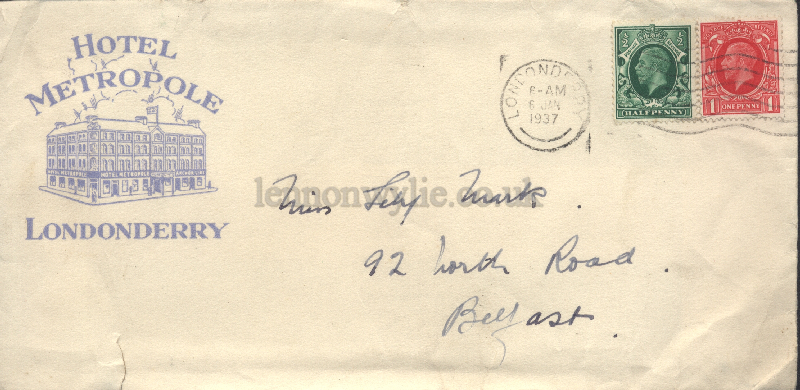 HOTEL
METROPOLE
HOTEL METROPOLE
LONDONDERRY
LONDONDERRY
8-AM
6 JAN
1937
1/2
1/2
HALFPENNY
1 ONE PENNY 1
lennonwylie.co.uk
Miss Lily Mark.
92 North Road.
Belfast.